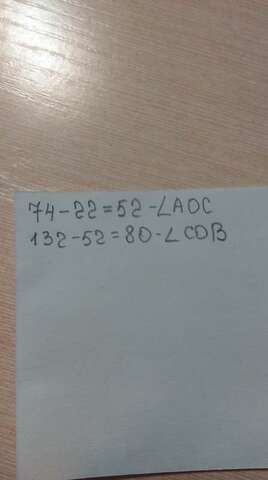 74-22=52-∠AOC
132-52=80-∠COB